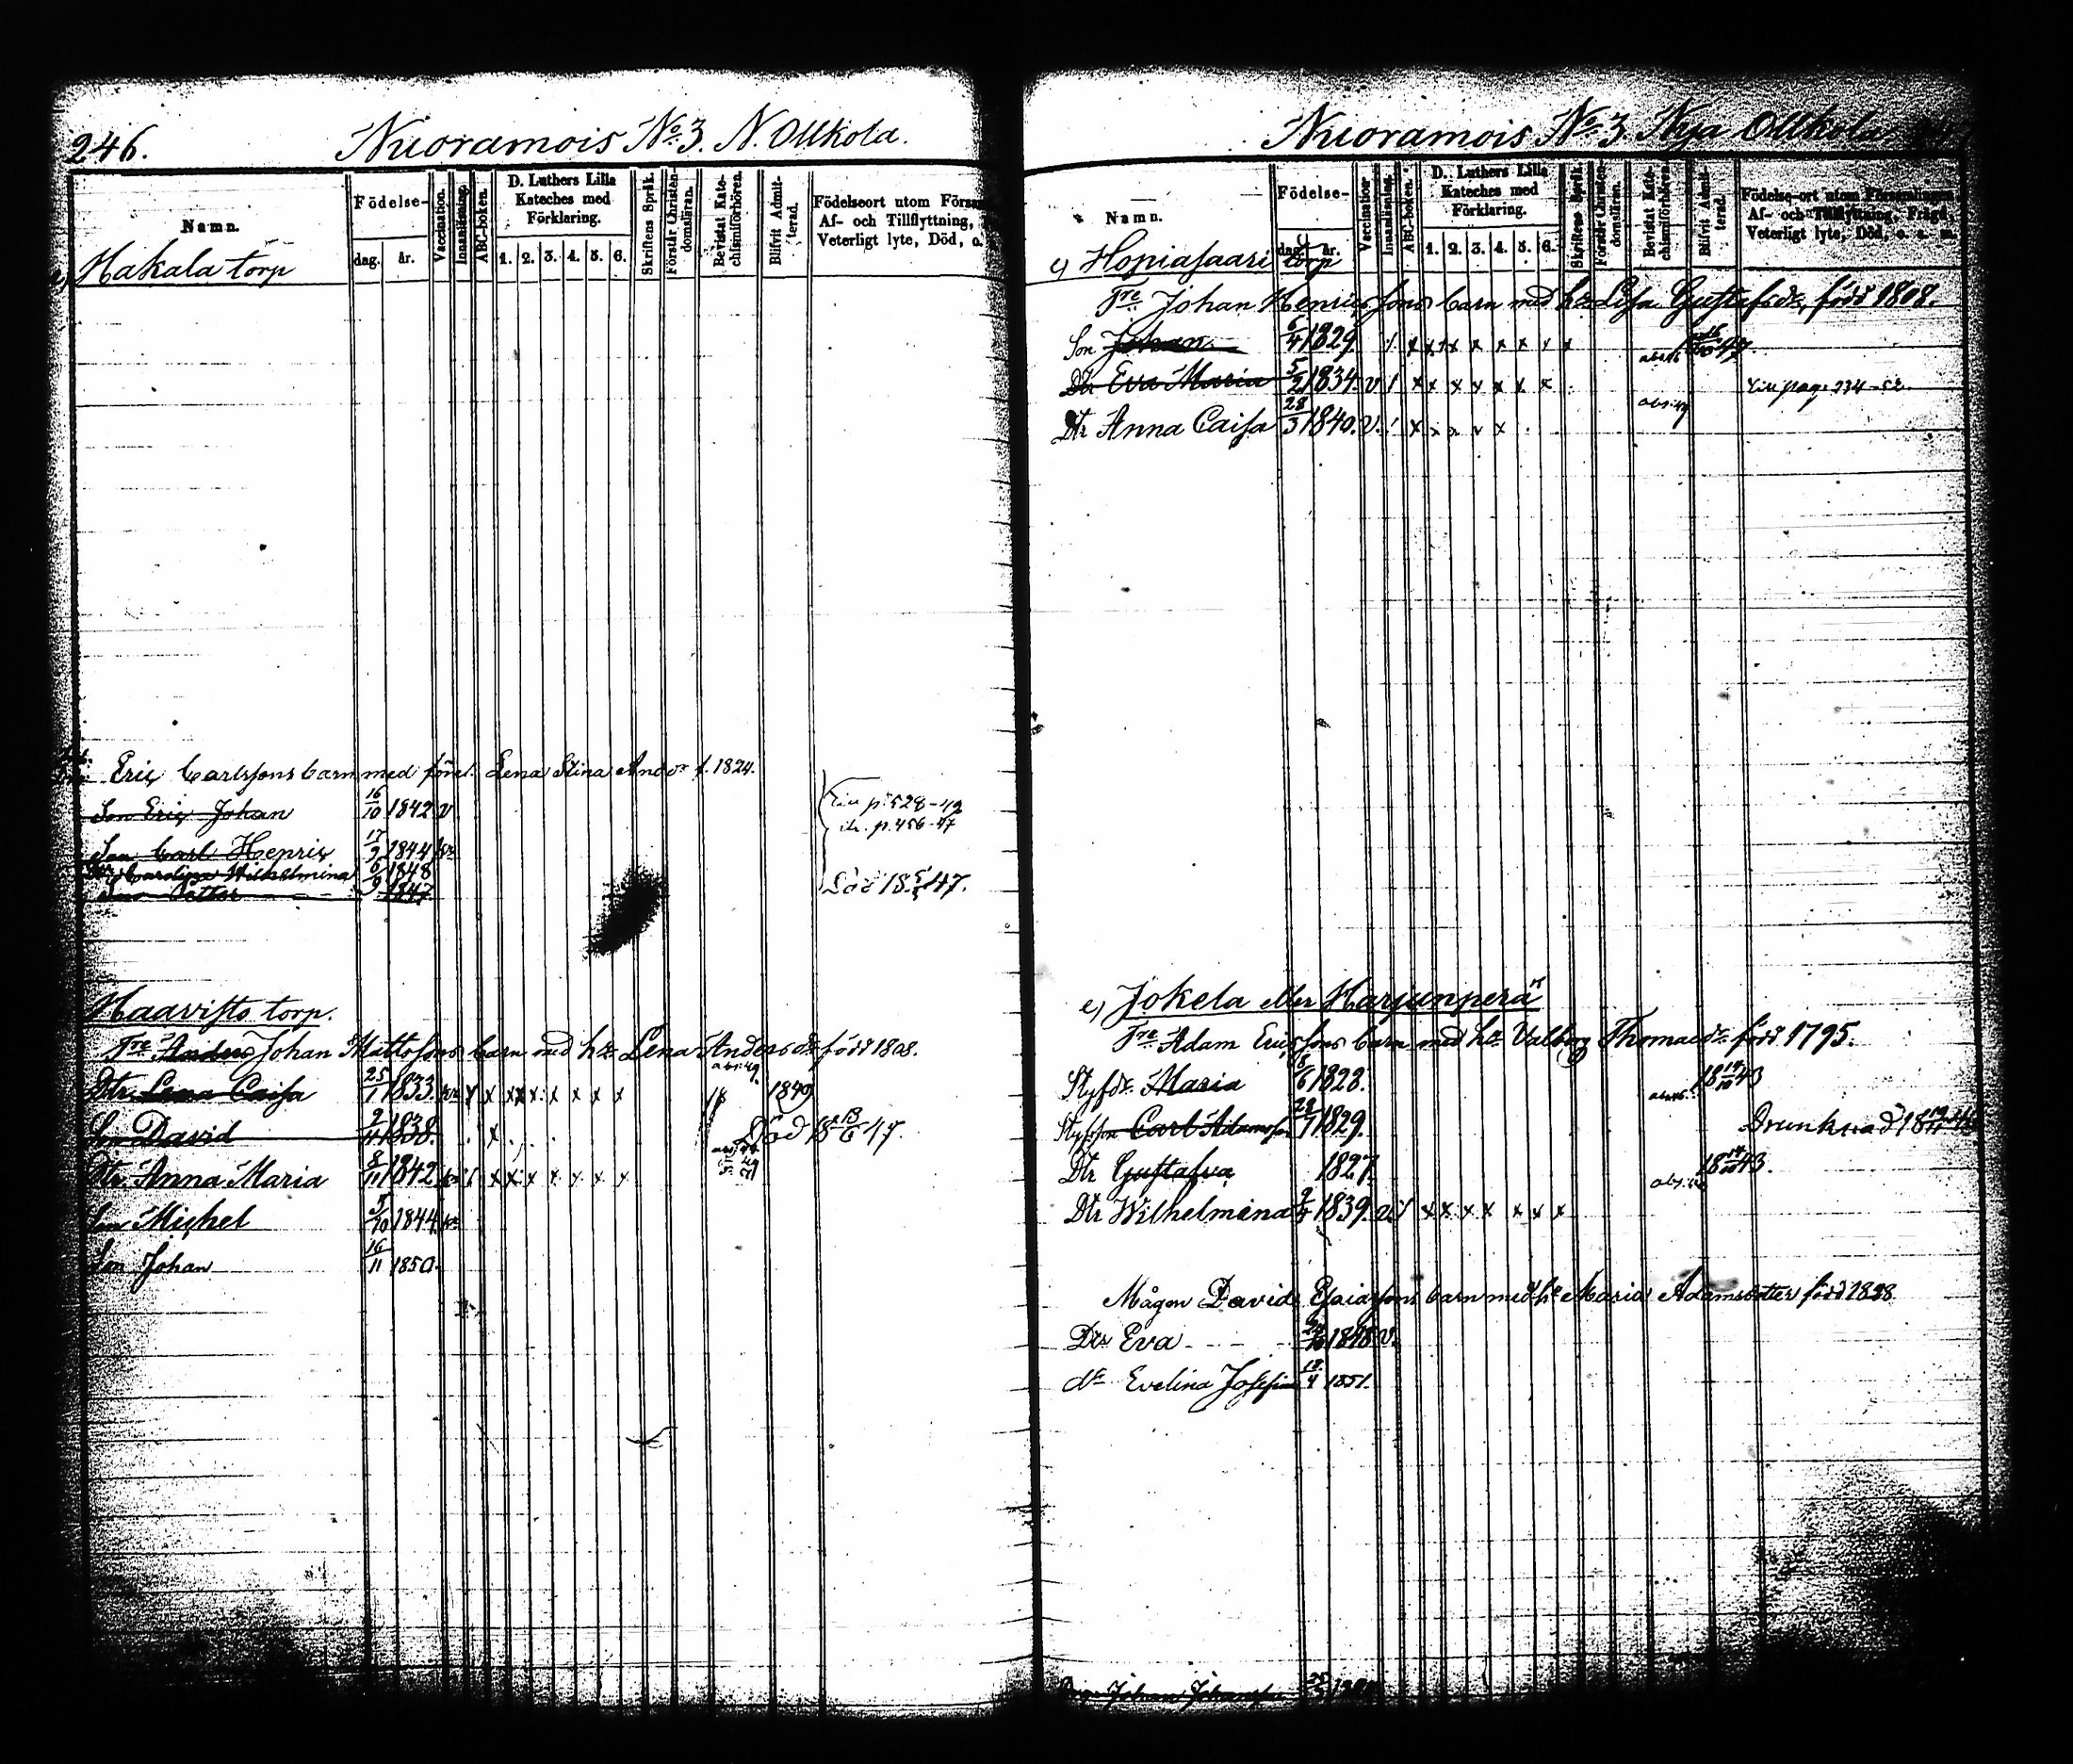 246.
Nuoramois No 3. N. Ollkola.
Namn.
Födelse-
dag. år.
Vaccination.
Innanläsning.
ABC-boken.
D. Luthers Lilla Kateches med Förklaring.
1. 2. 3. 4. 5. 6.
Skriftens Språk.
Förstår Christendomsläran.
Bevistat Katechismiförhören.
Blifvit Admitterad.
Födelseort utom Försam
Af- och Tillflyttning,
Veterligt lyte, Död, o.
Hakala torp
Eric Carlssons barn med före Lena Stina And. f. 1824.
Son Eric Johan 16/10 1842 v
p. 528-42
p. 456-47
Son Carl Henric 17/9 1844
Carolina Wilhelmina 6/9 1848
Son Petter 1847 Död 18 47.
Haavisto torp.
Tre Anders Johan Mattssons barn med h. Lena Andersdr född 1808.
abs. 49.
Dtr. Lena Caisa 25/1 1833 x x x x x x x x 1849
Son David 2/11 1838. x Död 18 13/6 47.
Dtr. Anna Maria 8/11 1842 x x x x x x x
Son Michel 5/10 1844
Son Johan 16/11 1850.
Nuoramois No 3. Nya Ollkola
Namn.
Födelse-
dag. år.
Vaccination
Innanläsning.
ABC-boken.
D. Luthers Lilla Kateches med Förklaring.
1. 2. 3. 4. 5. 6.
Skriftens Språk.
Förstår Christendomsläran.
Bevistat Katechismiförhören.
Blifvit Admitterad.
Födelse-ort utom Församlingen
Af- och Tillflyttning, Frägd,
Veterligt lyte, Död, o. s. m.
c) Hopiasaari torp
Tre Johan Henricssons barn med h. Lisa Gustafsdr, född 1808.
Son Johan 6/4 1829. x x x x x x x x x
Dtr Eva Maria 5/2 1834. v x x x x x x x pag. 234-52.
Dtr Anna Caisa 28/3 1840. v. x x x x x
e) Jokela eller Harjunperä
Tre Adam Ericssons barn med h. Valborg Thomasdr född 1795.
Styfdr. Maria 8/6 1828. 18 43
Styfson Carl Adamsson 28/1 1829. Drunknad 18
Dtr Gustafva 1827. 18 43.
Dtr Wilhelmina 1839. v x x x x x x x
Mågen David Esaiassons barn med h. Maria Adamsdotter född 1828.
Dtr Eva 1848. v.
dr Evelina Josefina 18/4 1851.
Johan Johanss.